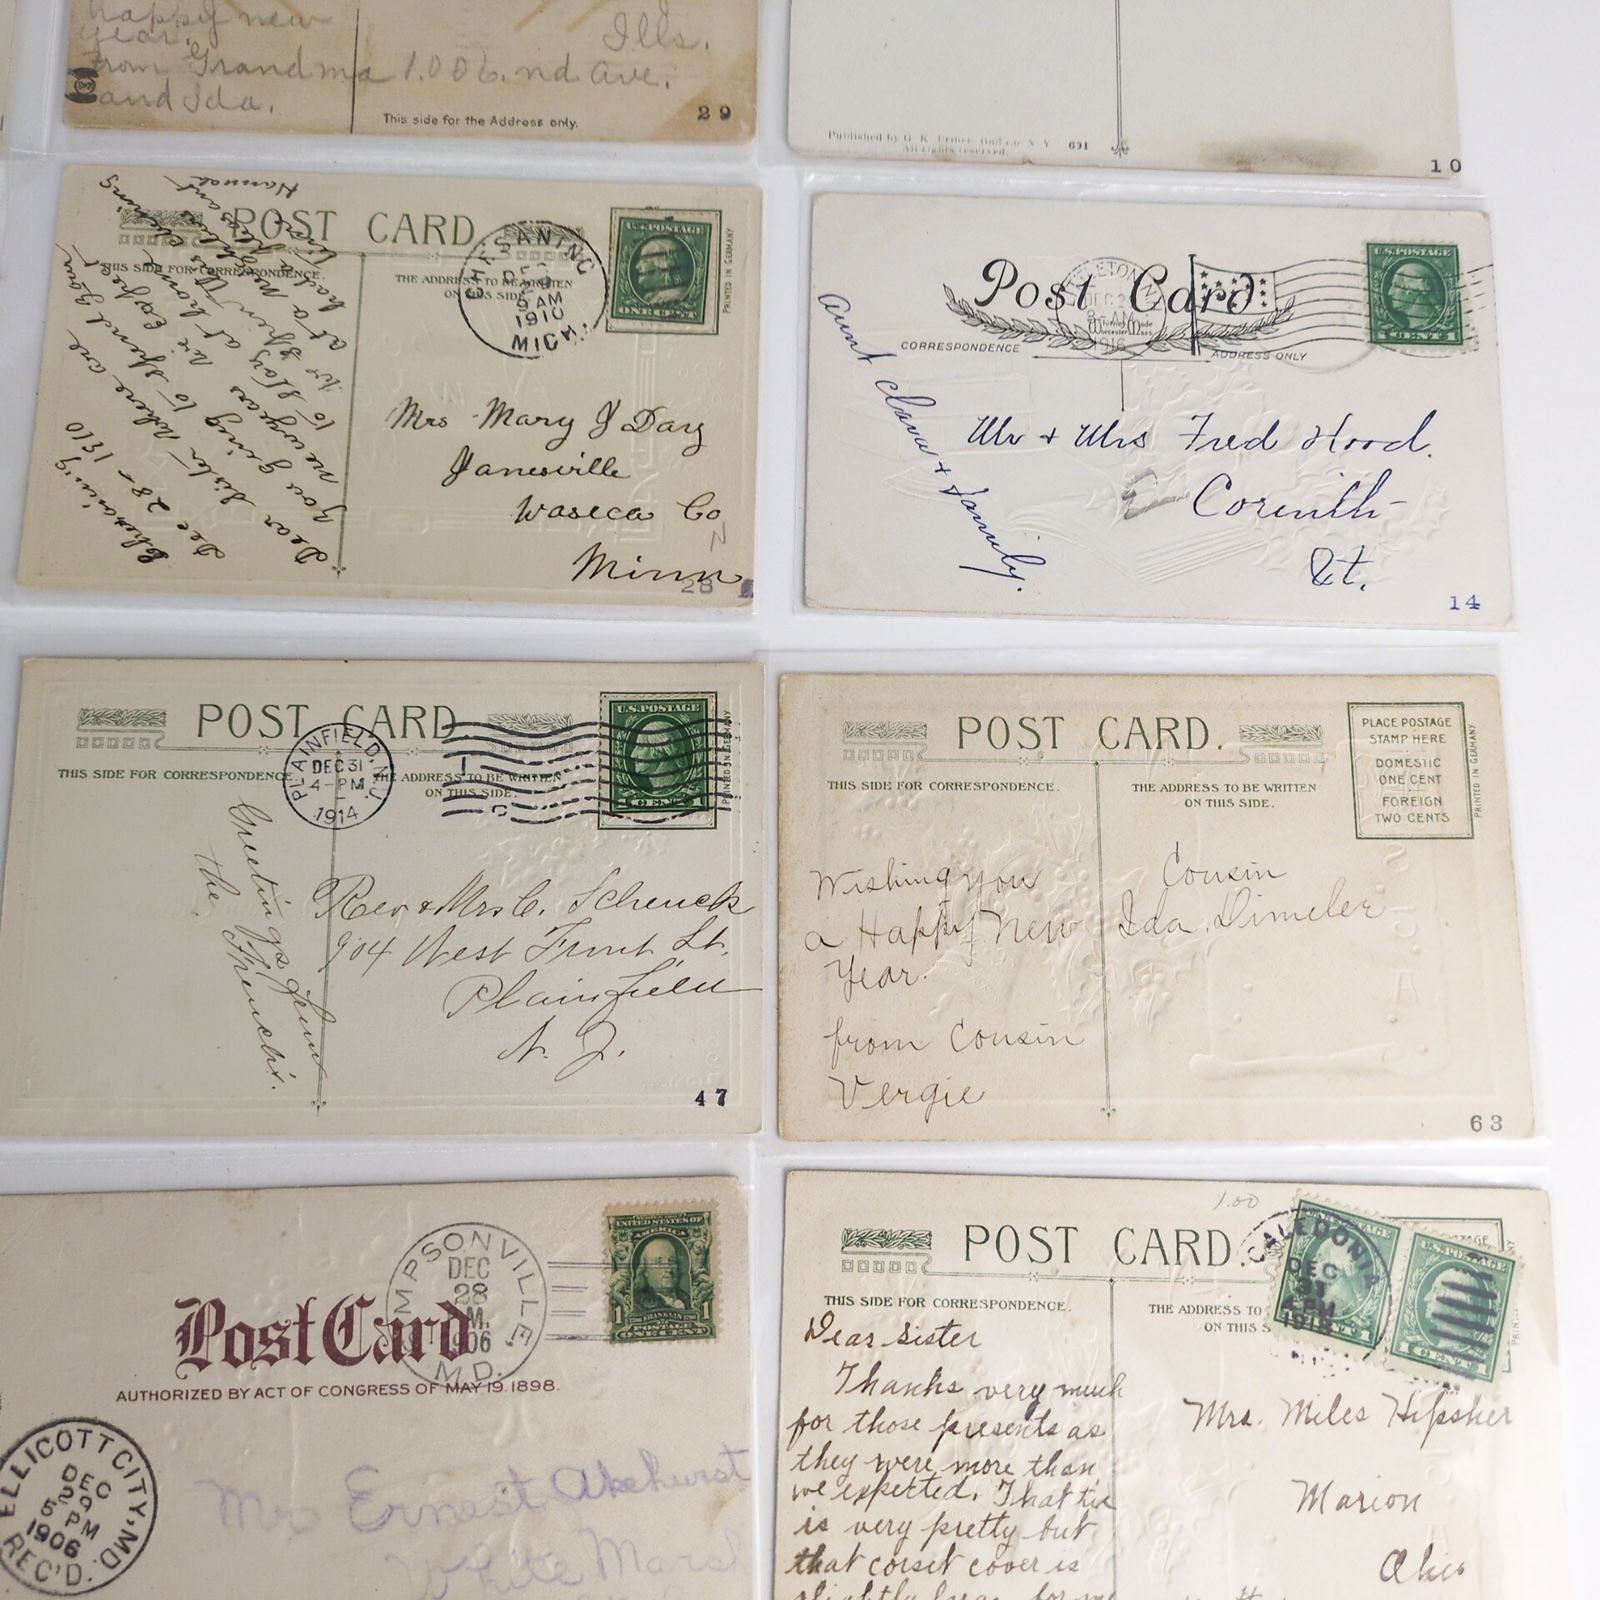 happy new
year.
From Grandma
and Ida.
Ills.
1.006. nd Ave.
This side for the Address only.
29
All rights reserved.
691
10
POST CARD
THIS SIDE FOR CORRESPONDENCE.
THE ADDRESS TO BE WRITTEN
ON THIS SIDE
CHESANING
9 AM
1910
MICH.
U.S. POSTAGE
ONE CENT
PRINTED IN GERMANY
Chesaning
Dec 28 - 1910
Dear Sister Where are
you going to spend your
newyears We expect
to stay at home
Hannah
Mrs Mary J Day
Janesville
Waseca Co
Minn
28
Post Card
CORRESPONDENCE
ADDRESS ONLY
DEC
1916
U.S. POSTAGE
1 CENT 1
Aunt Clara & family.
Mr & Mrs Fred Hood.
Corinth
Vt.
14
POST CARD
THIS SIDE FOR CORRESPONDENCE
THE ADDRESS TO BE WRITTEN
ON THIS SIDE.
PLAINFIELD, N.J.
DEC 31
4-PM
1914
U.S. POSTAGE
1 CENT 1
PRINTED IN GERMANY
Greetings from
the Frenchs.
Rev & Mrs C. Schenck
904 West Front St.
Plainfield
N. J.
47
POST CARD.
THIS SIDE FOR CORRESPONDENCE.
THE ADDRESS TO BE WRITTEN
ON THIS SIDE.
PLACE POSTAGE
STAMP HERE
DOMESTIC
ONE CENT
FOREIGN
TWO CENTS
PRINTED IN GERMANY
Wishing you
a Happy New
Year.
from Cousin
Vergie
Cousin
Ida Dimeler
63
Post Card
AUTHORIZED BY ACT OF CONGRESS OF MAY 19, 1898.
MPSONVILLE
DEC
28
M.
06
M.D.
UNITED STATES OF
AMERICA
1 FRANKLIN
POSTAGE
ONE CENT
ELLICOTT CITY, MD.
DEC
5 PM
1906
REC'D.
Mr Ernest Akehurst
White Marsh
1.00
POST CARD.
THIS SIDE FOR CORRESPONDENCE.
THE ADDRESS TO
ON THIS S
CALEDONIA
DEC
PM
U.S. POSTAGE
1 CENT
Dear Sister
Thanks very much
for those presents as
they were more than
we expected. That tie
is very pretty but
that corset cover is
slightly large for me
Mrs. Miles Hipsher
Marion
Ohio